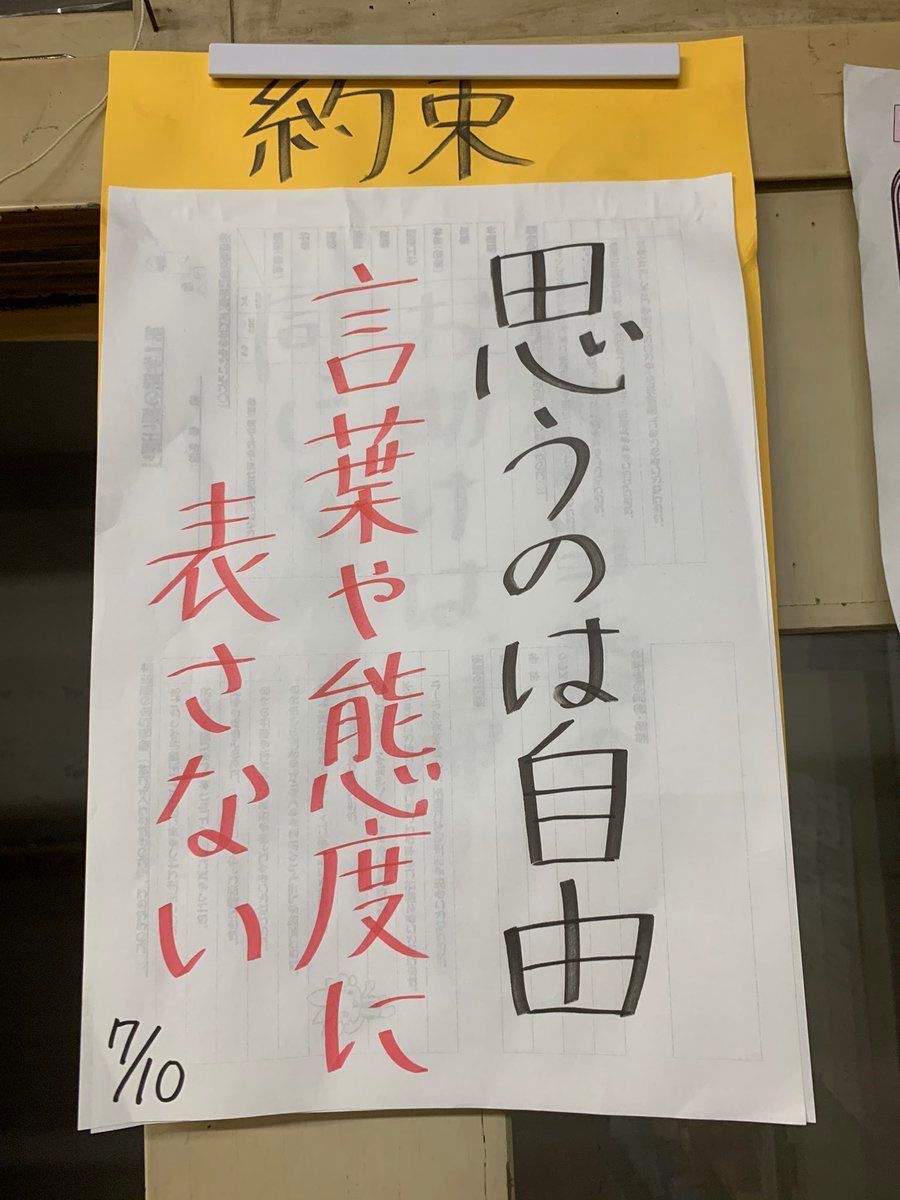 約束
思うのは自由
言葉や態度に
表さない
7/10